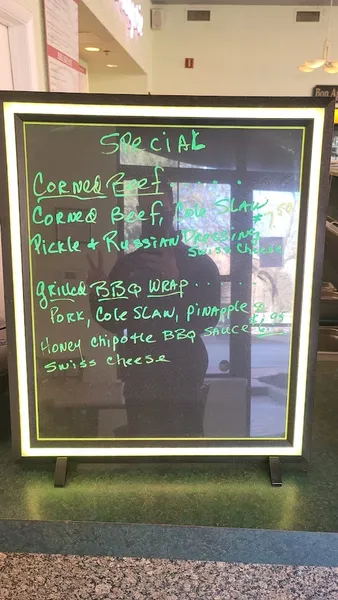 Special
Corned Beef ......
Corned Beef, Cole Slaw $7.50
Pickle & Russian Dressing
Swiss Cheese
Grilled BBQ Wrap .....
Pork, Cole Slaw, Pinapple &
Honey Chipotle BBQ Sauce
Swiss Cheese